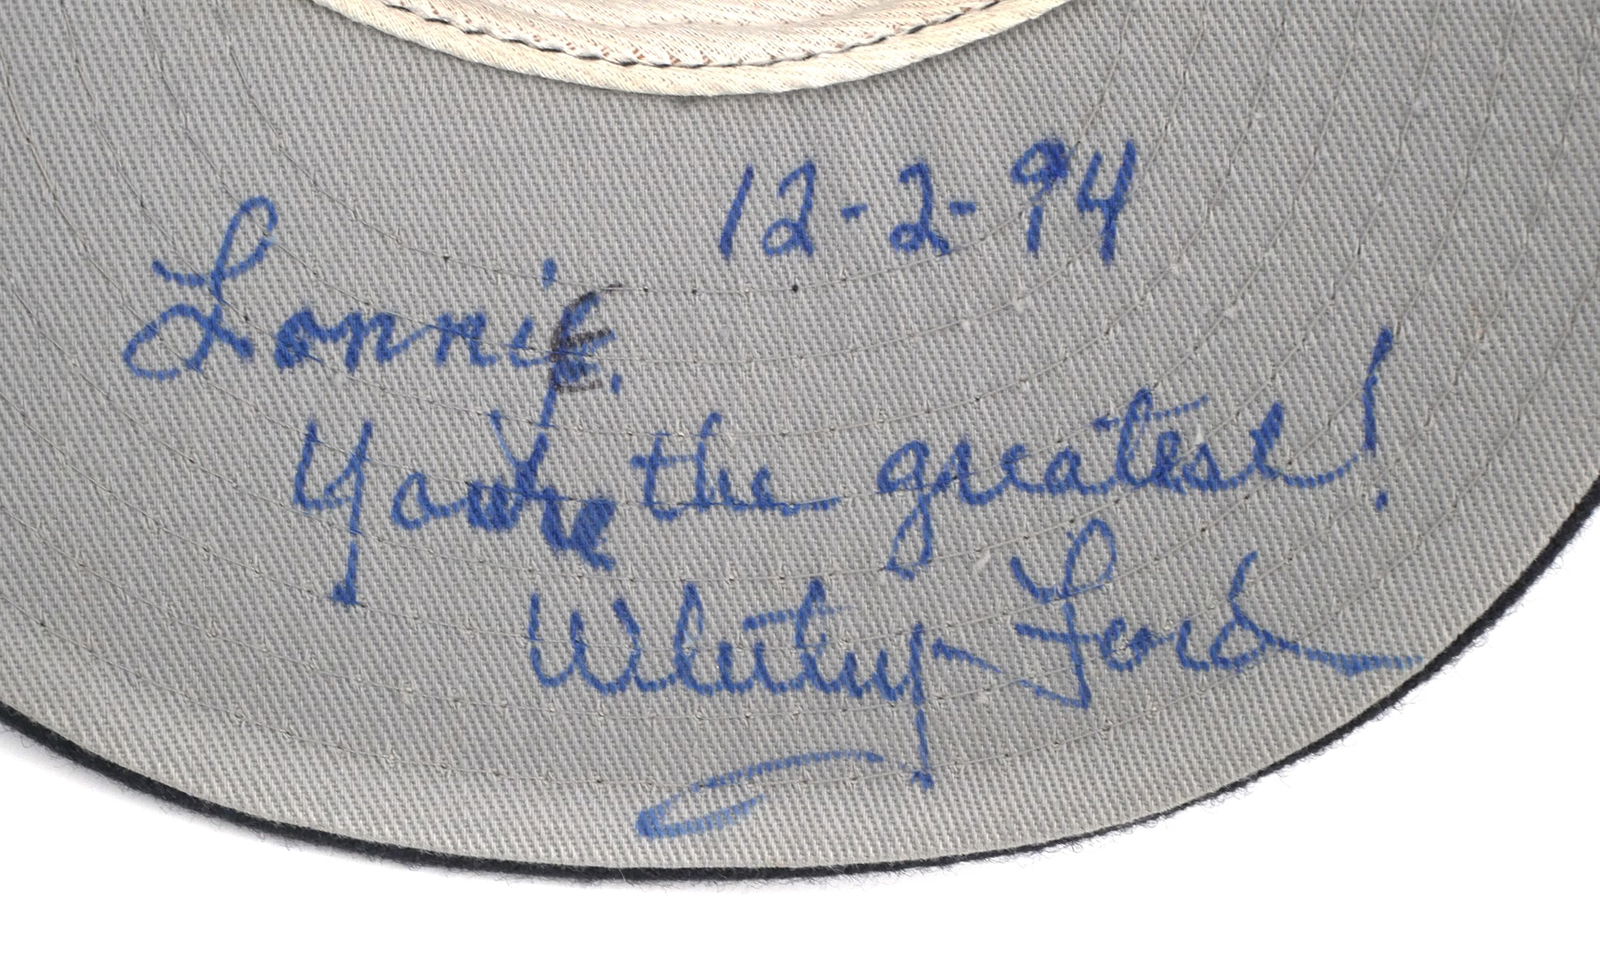 12-2-94
Lonnie,
You're the greatest!
Whitey Ford